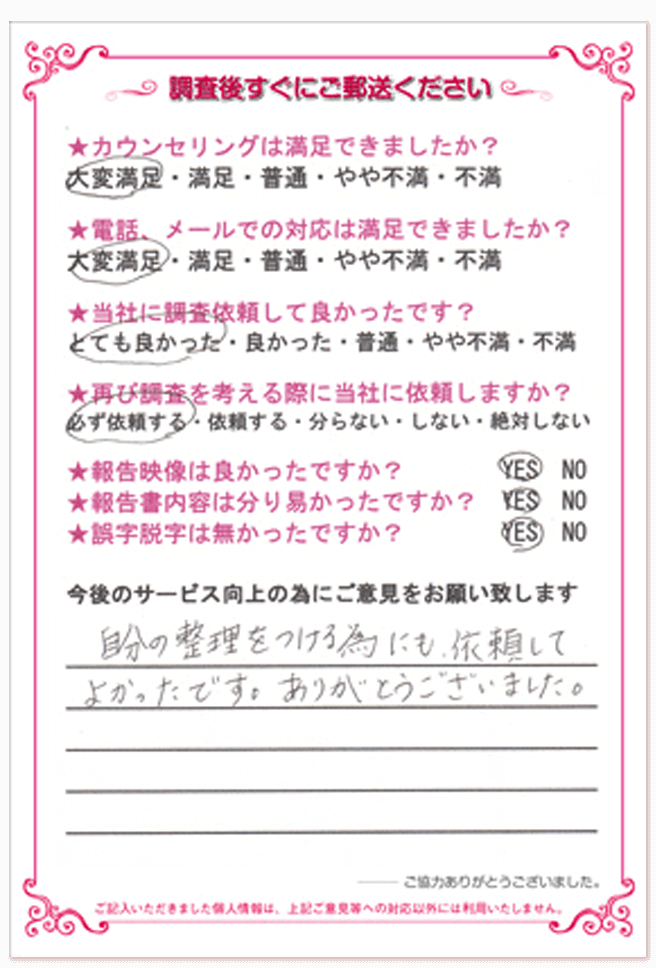 調査後すぐにご郵送ください
★カウンセリングは満足できましたか？
大変満足・満足・普通・やや不満・不満
★電話、メールでの対応は満足できましたか？
大変満足・満足・普通・やや不満・不満
★当社に調査依頼して良かったです？
とても良かった・良かった・普通・やや不満・不満
★再び調査を考える際に当社に依頼しますか？
必ず依頼する・依頼する・分らない・しない・絶対しない
★報告映像は良かったですか？ YES NO
★報告書内容は分り易かったですか？ YES NO
★誤字脱字は無かったですか？ YES NO
今後のサービス向上の為にご意見をお願い致します
自分の整理をつける為にも、依頼して
よかったです。ありがとうございました。
ご協力ありがとうございました。
ご記入いただきました個人情報は、上記ご意見等への対応以外には利用いたしません。